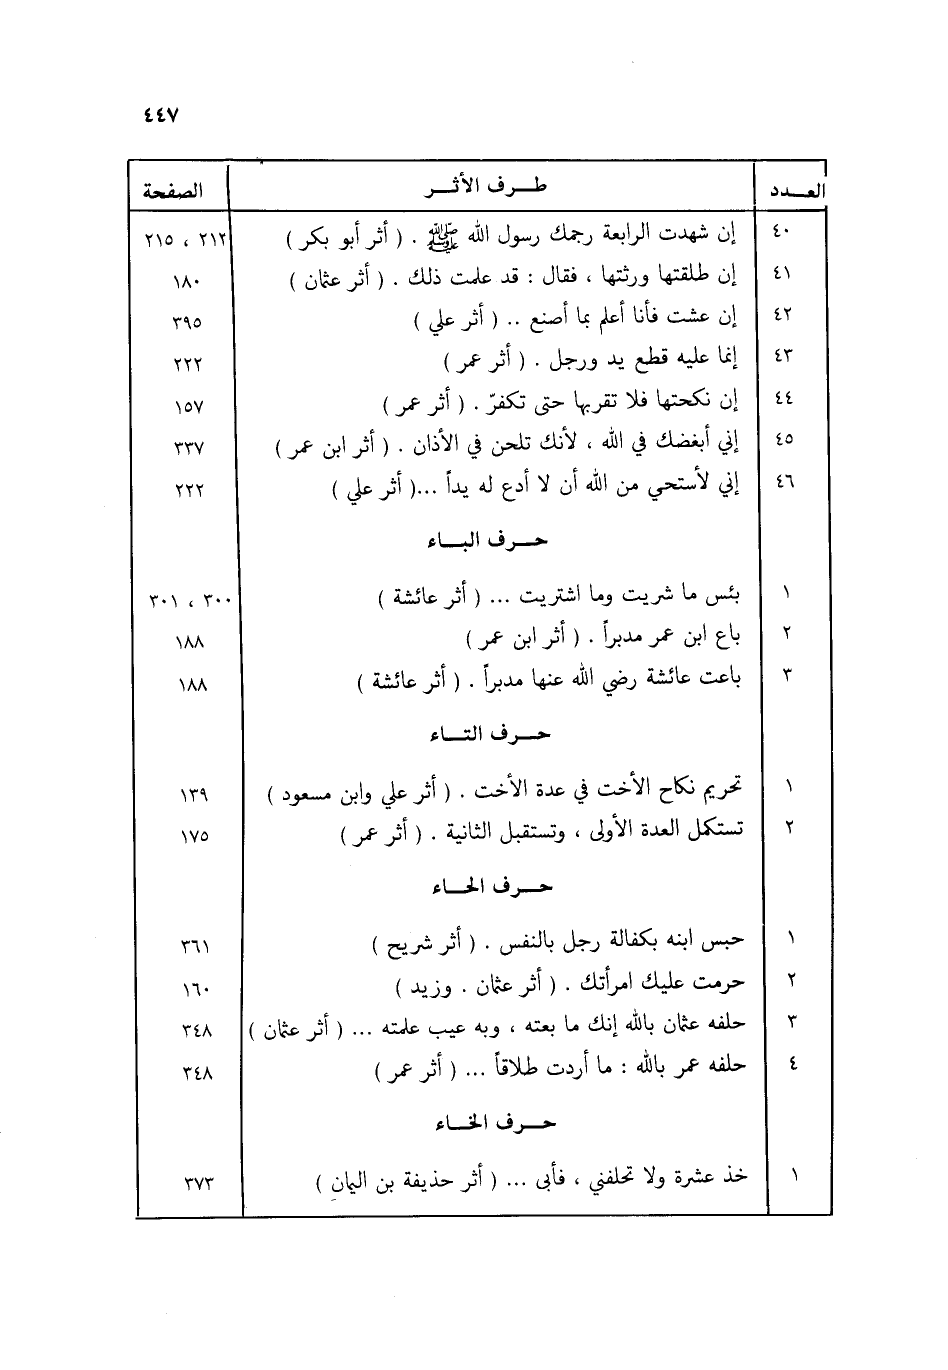 ٤٤٧
العـــدد طـرف الأثـر الصفحة
٤٠ إن شهدت الرابعة رجمك رسول الله ﷺ . ( أثر أبو بكر ) ٢١٢ ، ٢١٥
٤١ إن طلقتها ورثتها ، فقال : قد علمت ذلك . ( أثر عثمان ) ١٨٠
٤٢ إن عشت فأنا أعلم بما أصنع .. ( أثر علي ) ٣٩٥
٤٣ إنما عليه قطع يد ورجل . ( أثر عمر ) ٢٢٢
٤٤ إن نكحتها فلا تقربها حتى تكفرّ . ( أثر عمر ) ١٥٧
٤٥ إني أبغضك في الله ، لأنك تلحن في الأذان . ( أثر ابن عمر ) ٣٣٧
٤٦ إني لأستحي من الله أن لا أدع له يداً ...( أثر علي ) ٢٢٢
حـــرف البـــاء
١ بئس ما شريت وما اشتريت ... ( أثر عائشة ) ٣٠٠ ، ٣٠١
٢ باع ابن عمر مدبراً . ( أثر ابن عمر ) ١٨٨
٣ باعت عائشة رضي الله عنها مدبراً . ( أثر عائشة ) ١٨٨
حـــرف التـــاء
١ تحريم نكاح الأخت في عدة الأخت . ( أثر علي وابن مسعود ) ١٣٩
٢ تستكمل العدة الأولى ، وتستقبل الثانية . ( أثر عمر ) ١٧٥
حـــرف الحـــاء
١ حبس ابنه بكفالة رجل بالنفس . ( أثر شريح ) ٣٦١
٢ حرمت عليك امرأتك . ( أثر عثمان . وزيد ) ١٦٠
٣ حلفه عثمان بالله إنك ما بعته ، وبه عيب علمته ... ( أثر عثمان ) ٣٤٨
٤ حلفه عمر بالله : ما أردت طلاقاً ... ( أثر عمر ) ٣٤٨
حـــرف الخـــاء
١ خذ عشرة ولا تحلفني ، فأبى ... ( أثر حذيفة بن اليمان ) ٣٧٣